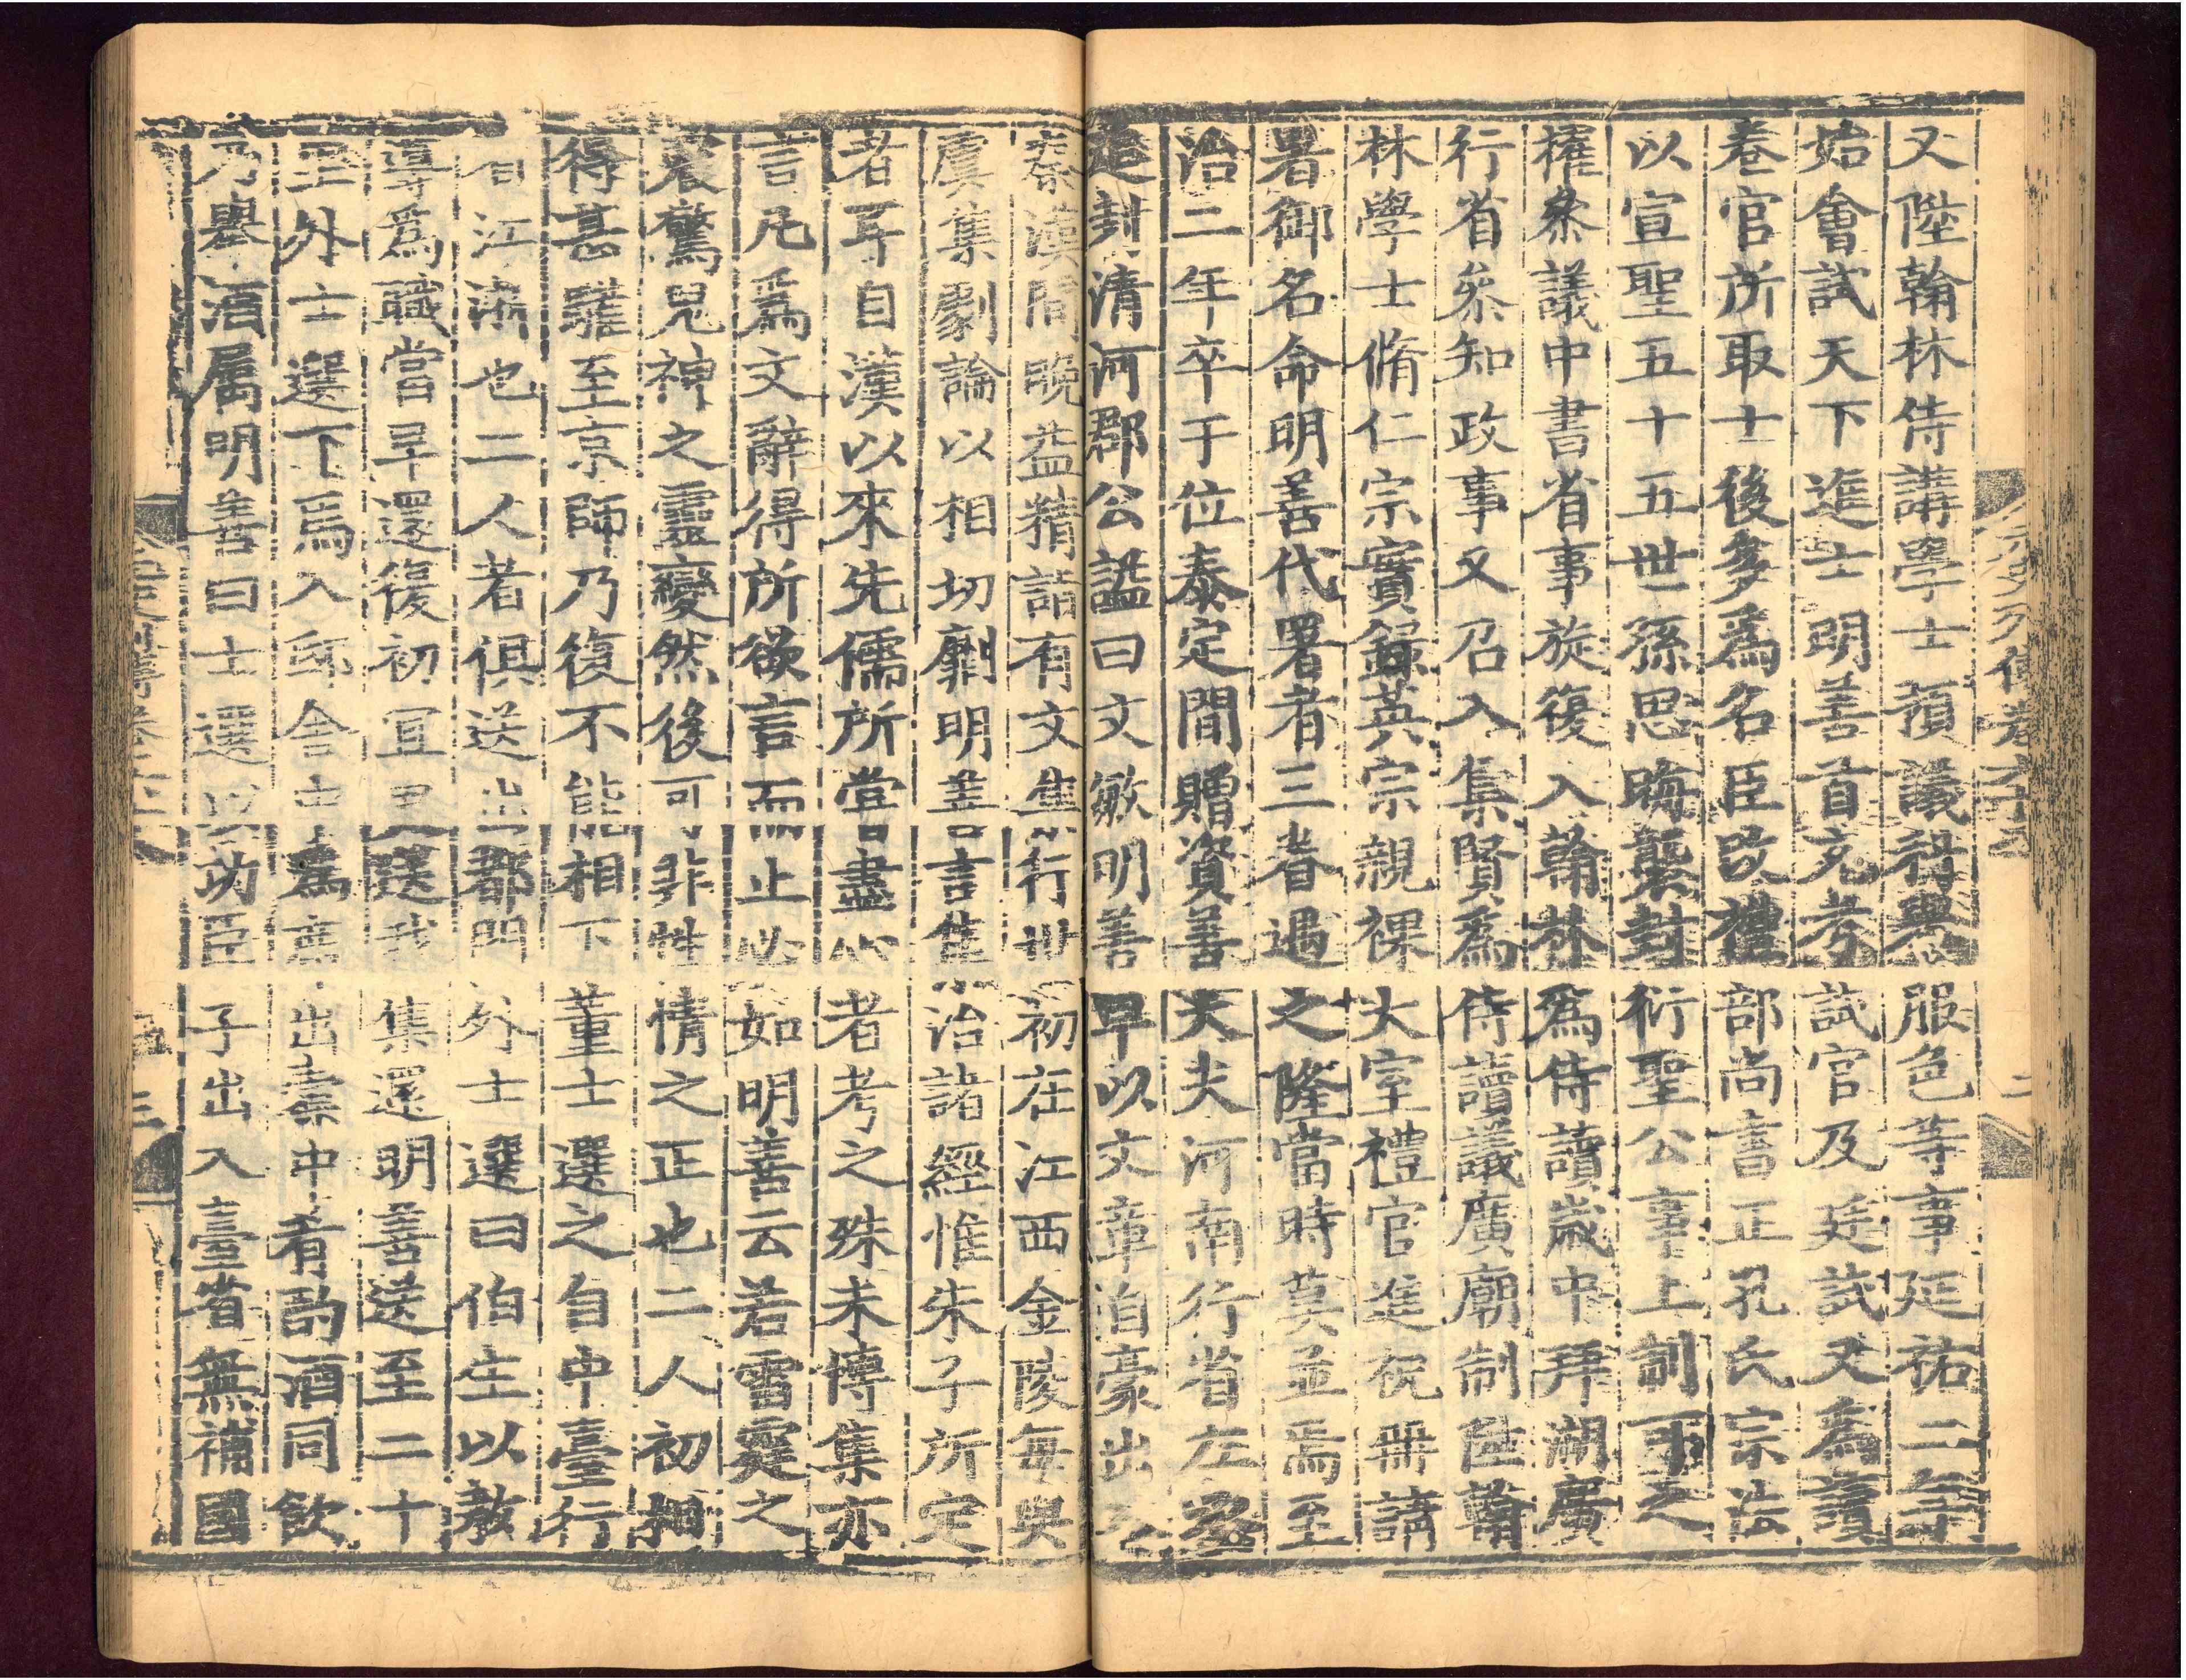 又陞翰林侍講學士預議科舉服色等事延祐二年
始會試天下進士明善首充考試官及廷試又爲讀
卷官所取士後多爲名臣改禮部尚書正孔氏宗法
以宣聖五十五世孫思晦襲封衍聖公事上制可之
擢參議中書省事旋復入翰林爲侍讀歲中拜湖廣
行省參知政事又召入集賢爲侍讀議廣廟制陞翰
林學士脩仁宗實錄英宗親祼大室禮官進祝冊請
署御名命明善代署者三眷遇之隆當時莫並焉至
治二年卒于位泰定間贈資善大夫河南行省左丞
追封清河郡公諡曰文敏明善早以文章自豪出入
秦漢間晚益精詣有文集行世初在江西金陵每與
虞集劇論以相切劘明善言集治諸經惟朱子所定
者耳自漢以來先儒所嘗盡心者考之殊未博集亦
言凡爲文辭得所欲言而止必如明善云若雷霆之
震驚鬼神之靈變然後可非性情之正也二人初相
得甚驩至京師乃復不能相下董士選之自中臺行
省江浙也二人者俱送出都門外士選曰伯生以教
導爲職當早還復初宜更送我集還明善送至二十
里外士選下馬入邸舍中爲席出橐中肴酌酒同飲
乃舉酒屬明善曰士選以功臣子出入臺省無補國